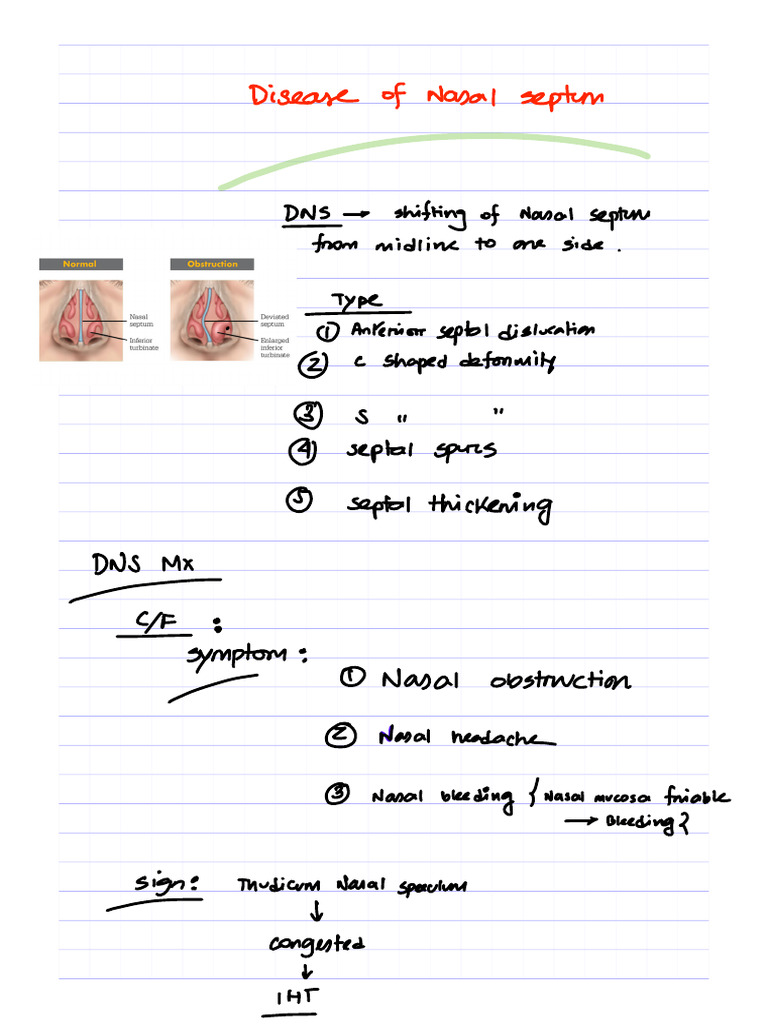 Disease of Nasal septum
DNS → shifting of Nasal septum
from midline to one side.
Normal
Obstruction
Nasal septum
Inferior turbinate
Deviated septum
Enlarged inferior turbinate
Type
① Anterior septal dislocation
② C shaped deformity
③ S " "
④ septal spurs
⑤ septal thickening
DNS Mx
C/F :
symptom :
① Nasal obstruction
② Nasal headache
③ Nasal bleeding { Nasal mucosa friable
→ Bleeding }
sign : Thudicum Nasal speculum
↓
congested
↓
IHT